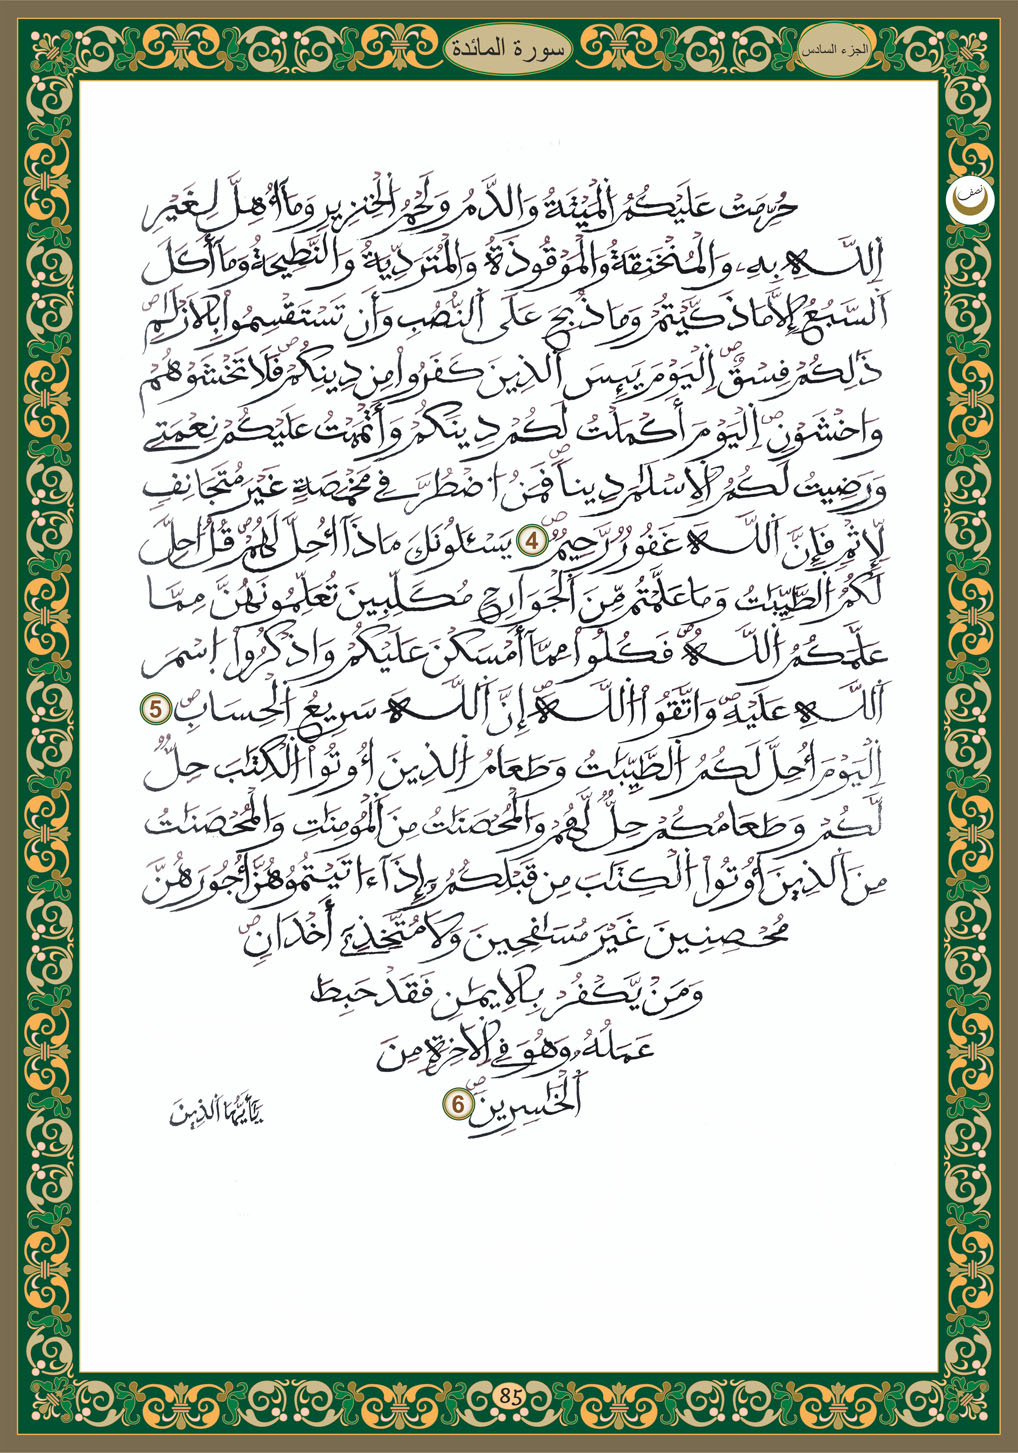 سورة المائدة
الجزء السادس
نصف
حُرِّمَتْ عَلَيْكُمُ الْمَيْتَةُ وَالدَّمُ وَلَحْمُ الْخِنزِيرِ وَمَا أُهِلَّ لِغَيْرِ
اِللَّهِ بِهِۦ وَالْمُنْخَنِقَةُ وَالْمَوْقُوذَةُ وَالْمُتَرَدِّيَةُ وَالنَّطِيحَةُ وَمَا أَكَلَ
اَلسَّبُعُ إِلَّا مَا ذَكَّيْتُمْ وَمَا ذُبِحَ عَلَى اَلنُّصُبِ وَأَن تَسْتَقْسِمُواْ بِالْأَزْلَٰمِ
ذَٰلِكُمْ فِسْقٌ اِلْيَوْمَ يَئِسَ اَلذِينَ كَفَرُواْ مِن دِينِكُمْ فَلَا تَخْشَوْهُمْ
وَاخْشَوْنِ اِلْيَوْمَ أَكْمَلْتُ لَكُمْ دِينَكُمْ وَأَتْمَمْتُ عَلَيْكُمْ نِعْمَتِے
وَرَضِيتُ لَكُمُ الْإِسْلَٰمَ دِيناً فَمَنُ اضْطُرَّ فِے مَخْمَصَةٍ غَيْرَ مُتَجَانِفٍ
لِّإِثْمٍ فَإِنَّ اَللَّهَ غَفُورٌ رَّحِيمٌ 4 يَسْـَٔلُونَكَ مَاذَا أُحِلَّ لَهُمْ قُلُ احِلَّ
لَكُمُ الطَّيِّبَٰتُ وَمَا عَلَّمْتُم مِّنَ اَلْجَوَارِحِ مُكَلِّبِينَ تُعَلِّمُونَهُنَّ مِمَّا
عَلَّمَكُمُ اللَّهُ فَكُلُواْ مِمَّا أَمْسَكْنَ عَلَيْكُمْ وَاذْكُرُواْ اِسْمَ
اَللَّهِ عَلَيْهِ وَاتَّقُواْ اللَّهَ إِنَّ اَللَّهَ سَرِيعُ الْحِسَابِ 5
اِلْيَوْمَ أُحِلَّ لَكُمُ الطَّيِّبَٰتُ وَطَعَامُ الذِينَ أُوتُواْ الْكِتَٰبَ حِلٌّ
لَّكُمْ وَطَعَامُكُمْ حِلٌّ لَّهُمْ وَالْمُحْصَنَٰتُ مِنَ اَلْمُومِنَٰتِ وَالْمُحْصَنَٰتُ
مِنَ اَلذِينَ أُوتُواْ الْكِتَٰبَ مِن قَبْلِكُمْ إِذَا ءَاتَيْتُمُوهُنَّ أُجُورَهُنَّ
مُحْصِنِينَ غَيْرَ مُسَٰفِحِينَ وَلَا مُتَّخِذِے أَخْدَانٍ
وَمَنْ يَّكْفُرْ بِالْإِيمَٰنِ فَقَدْ حَبِطَ
عَمَلُهُۥ وَهُوَ فِے اِلْأَخِرَةِ مِنَ
اَلْخَٰسِرِينَ 6
يَٰأَيُّهَا اَلذِينَ
85